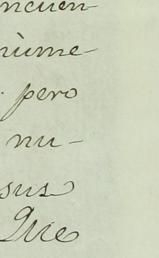 ncuen
nùme-
pero
nu-
sus
Que